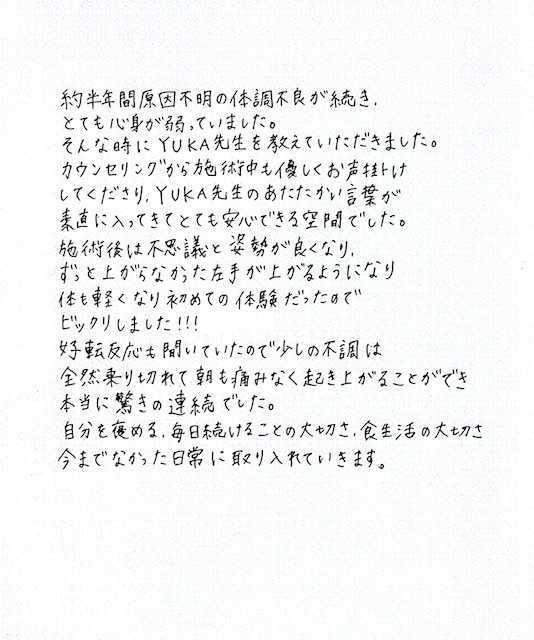 約半年間原因不明の体調不良が続き、
とても心身が弱っていました。
そんな時にYUKA先生を教えていただきました。
カウンセリングから施術中も優しくお声掛け
してくださり、YUKA先生のあたたかい言葉が
素直に入ってきてとても安心できる空間でした。
施術後は不思議と姿勢が良くなり、
ずっと上がらなかった左手が上がるようになり
体も軽くなり初めての体験だったので
ビックリしました!!!
好転反応も聞いていたので少しの不調は
全然乗り切れて朝も痛みなく起き上がることができ
本当に驚きの連続でした。
自分を褒める、毎日続けることの大切さ、食生活の大切さ
今までなかった日常に取り入れていきます。